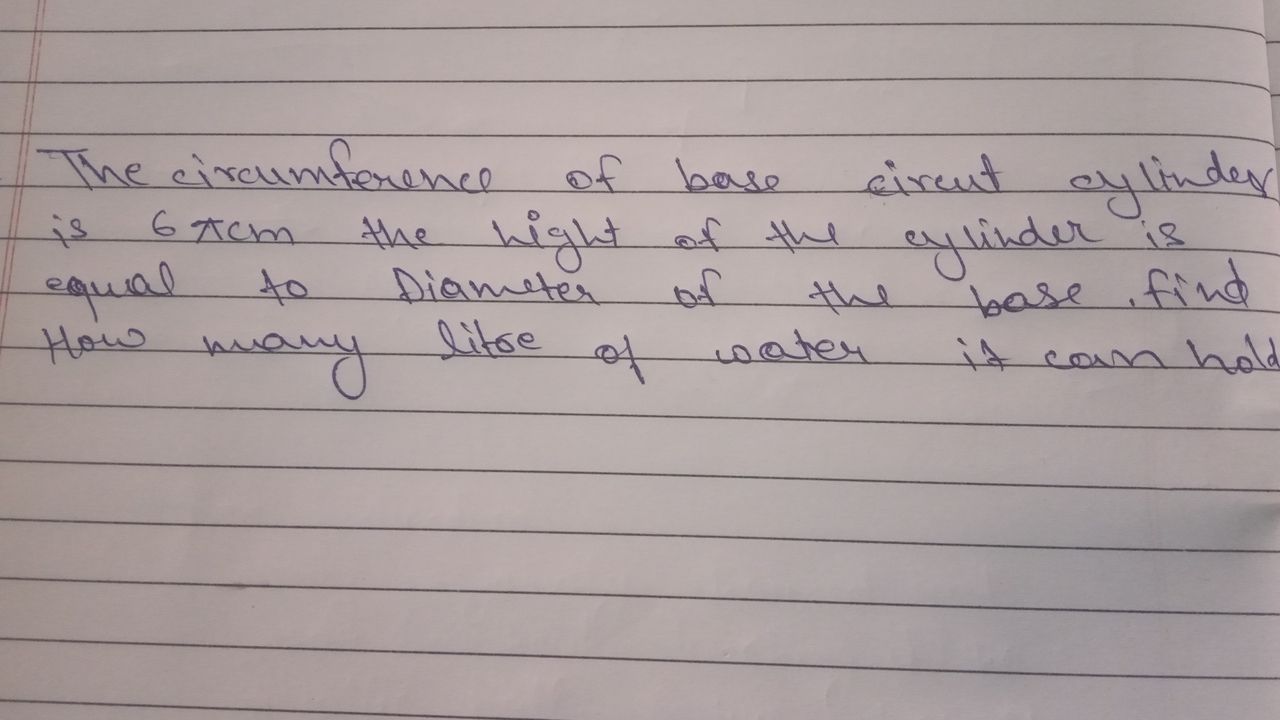 The circumference of base circut cylinder
is 6πcm the hight of the cylinder is
equal to Diameter of the base . find
How many litre of water it can hold